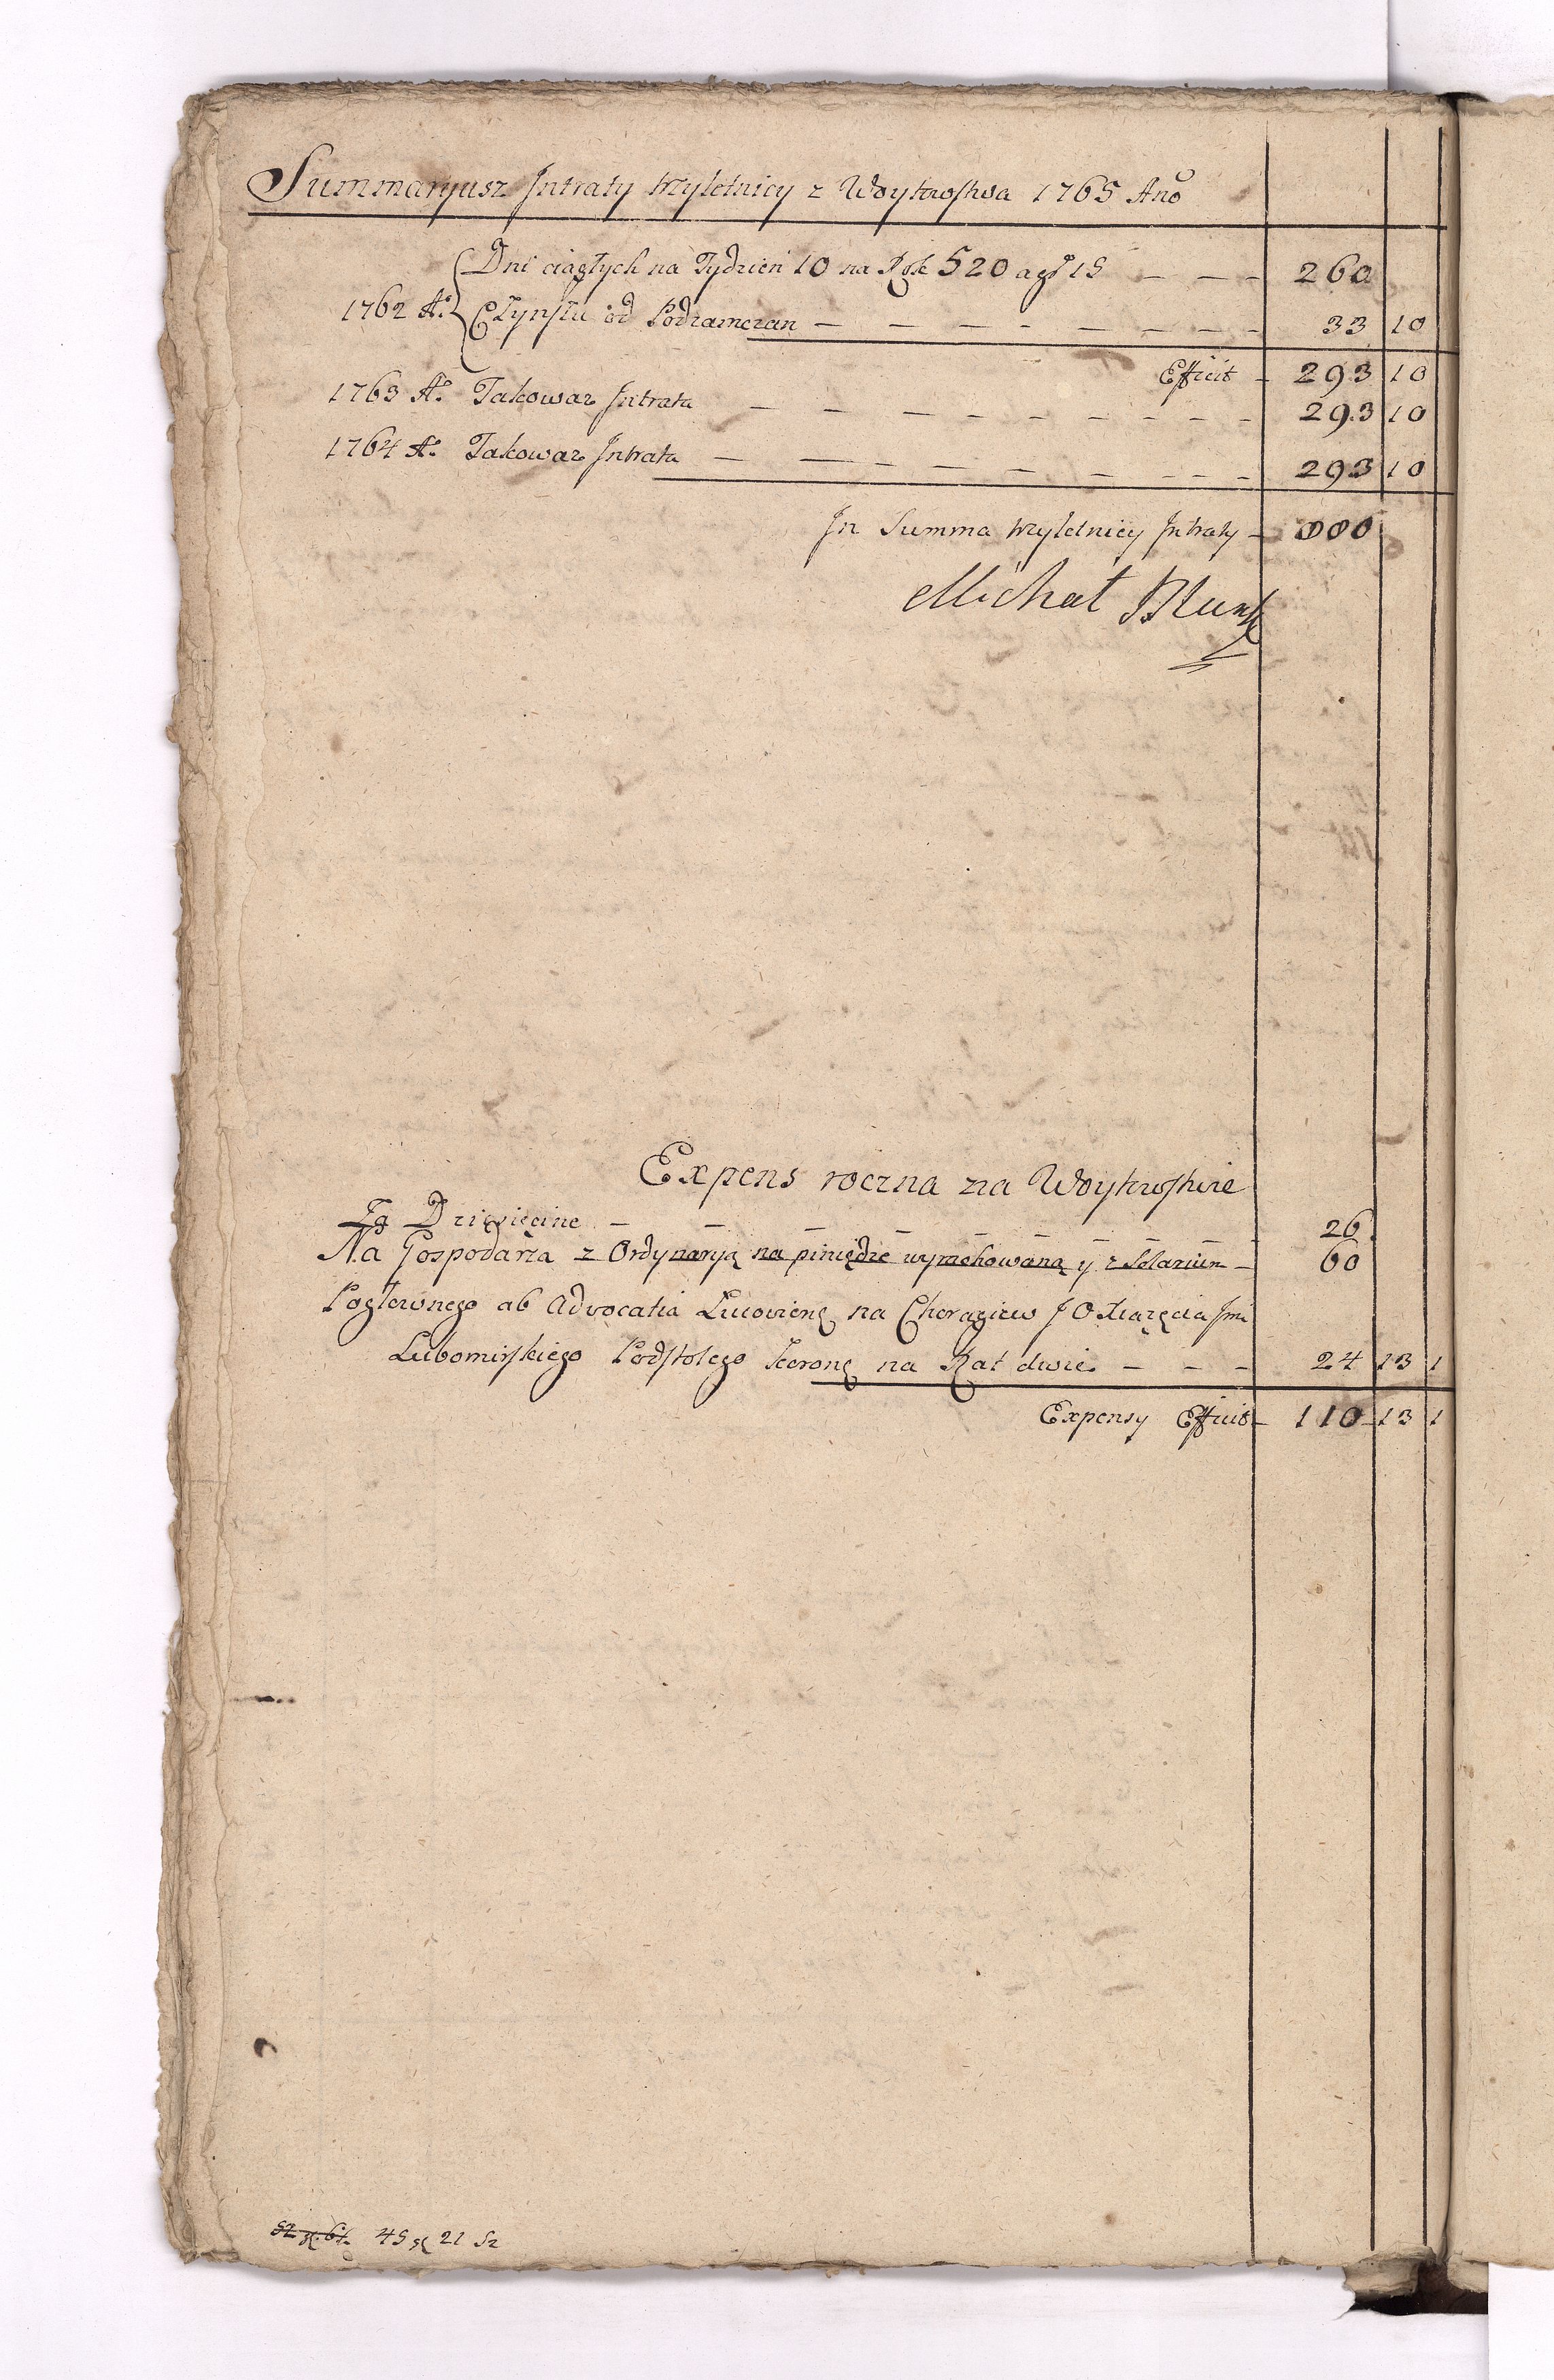 Summaryusz Jntraty trzyletnicy z Woytowstwa 1765 Anō
Dni ciągłych na Tydzien 10 na Rok 520 a gr 15 — — — 260
1762 Aº Czynszu od Podzamczan — — — — — — — — 33 10
Efficit — 293 10
1763 Aº Takowaz Jntrata — — — — — — — — — 293 10
1764 Aº Takowaz Jntrata — — — — — — — — — 293 10
Jn Summa trzyletnicy Jntraty — 880
Michał
Expens roczna na Woytowstwie
Za Dziesięcine — — — — — — — 26
Na Gospodarza z Ordynaryą na piniądze wyrachowaną y z Solarium — 60
Pogłownego ab Advocatia na Chorągiew J O Xiązęcia Jmi
Lubomirskiego Podstolego Koronę na Rat dwie — — — 24 13 1
Expensy Efficit — 110 13 1
45 21